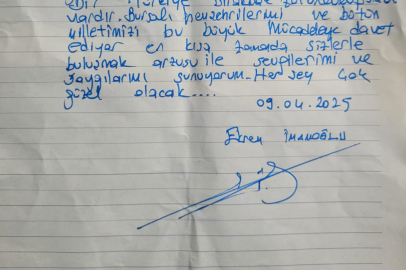 Türkiye
vardır. Bursalı hemşehrilerimi ve bütün
milletimizi bu büyük mücadeleye davet
ediyor en kısa zamanda sizlerle
buluşmak arzusu ile sevgilerimi ve
saygılarımı sunuyorum. Her şey çok
güzel olacak....
09.04.2025
Ekrem İMAMOĞLU